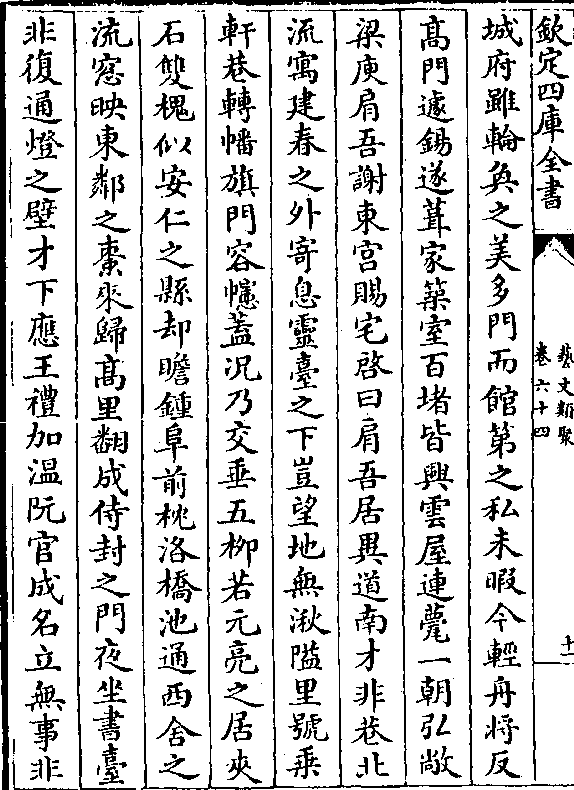 欽定四庫全書
藝文類聚
卷六十四
十
城府雖輪奐之美多門而館第之私未暇今輕舟將反
髙門遽錫遂葺家築室百堵皆興雲屋連甍一朝弘敞
梁庾肩吾謝東宫賜宅啓曰肩吾居異道南才非巷北
流寓建春之外寄息靈臺之下豈望地無湫隘里號乗
軒巷轉幡旗門容幰葢况乃交垂五栁若元亮之居夾
石雙槐似安仁之縣却瞻鍾阜前枕洛橋池通西舍之
流窓映東鄰之棗來歸髙里翻成侍封之門夜坐書臺
非復通燈之壁才下應王禮加温阮官成名立無事非